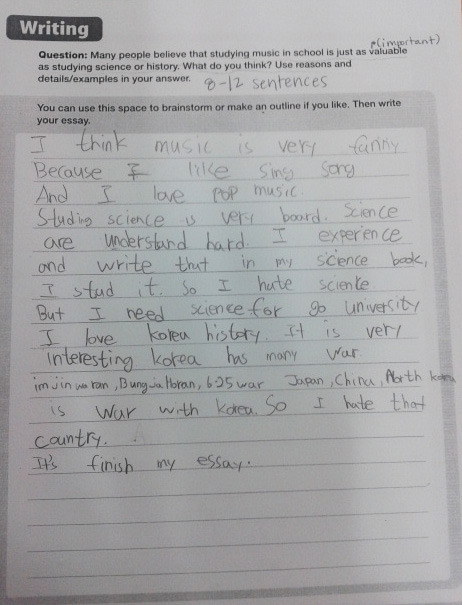 Writing
(important)
Question: Many people believe that studying music in school is just as valuable
as studying science or history. What do you think? Use reasons and
details/examples in your answer. 8-12 sentences
You can use this space to brainstorm or make an outline if you like. Then write
your essay.
I think music is very fanny
Because I like sing song
And I love pop music.
Studing science is very board. Science
are understand hard. I experience
and write that in my science book,
I stud it. So I hate science
But I need science for go university
I love korea history. It is very
interesting korea has many war.
imjin wa ran, Bung Ja Horan, 6.25 war Japan, China, North korea
is war with korea. So I hate that
country.
It's finish my essay.